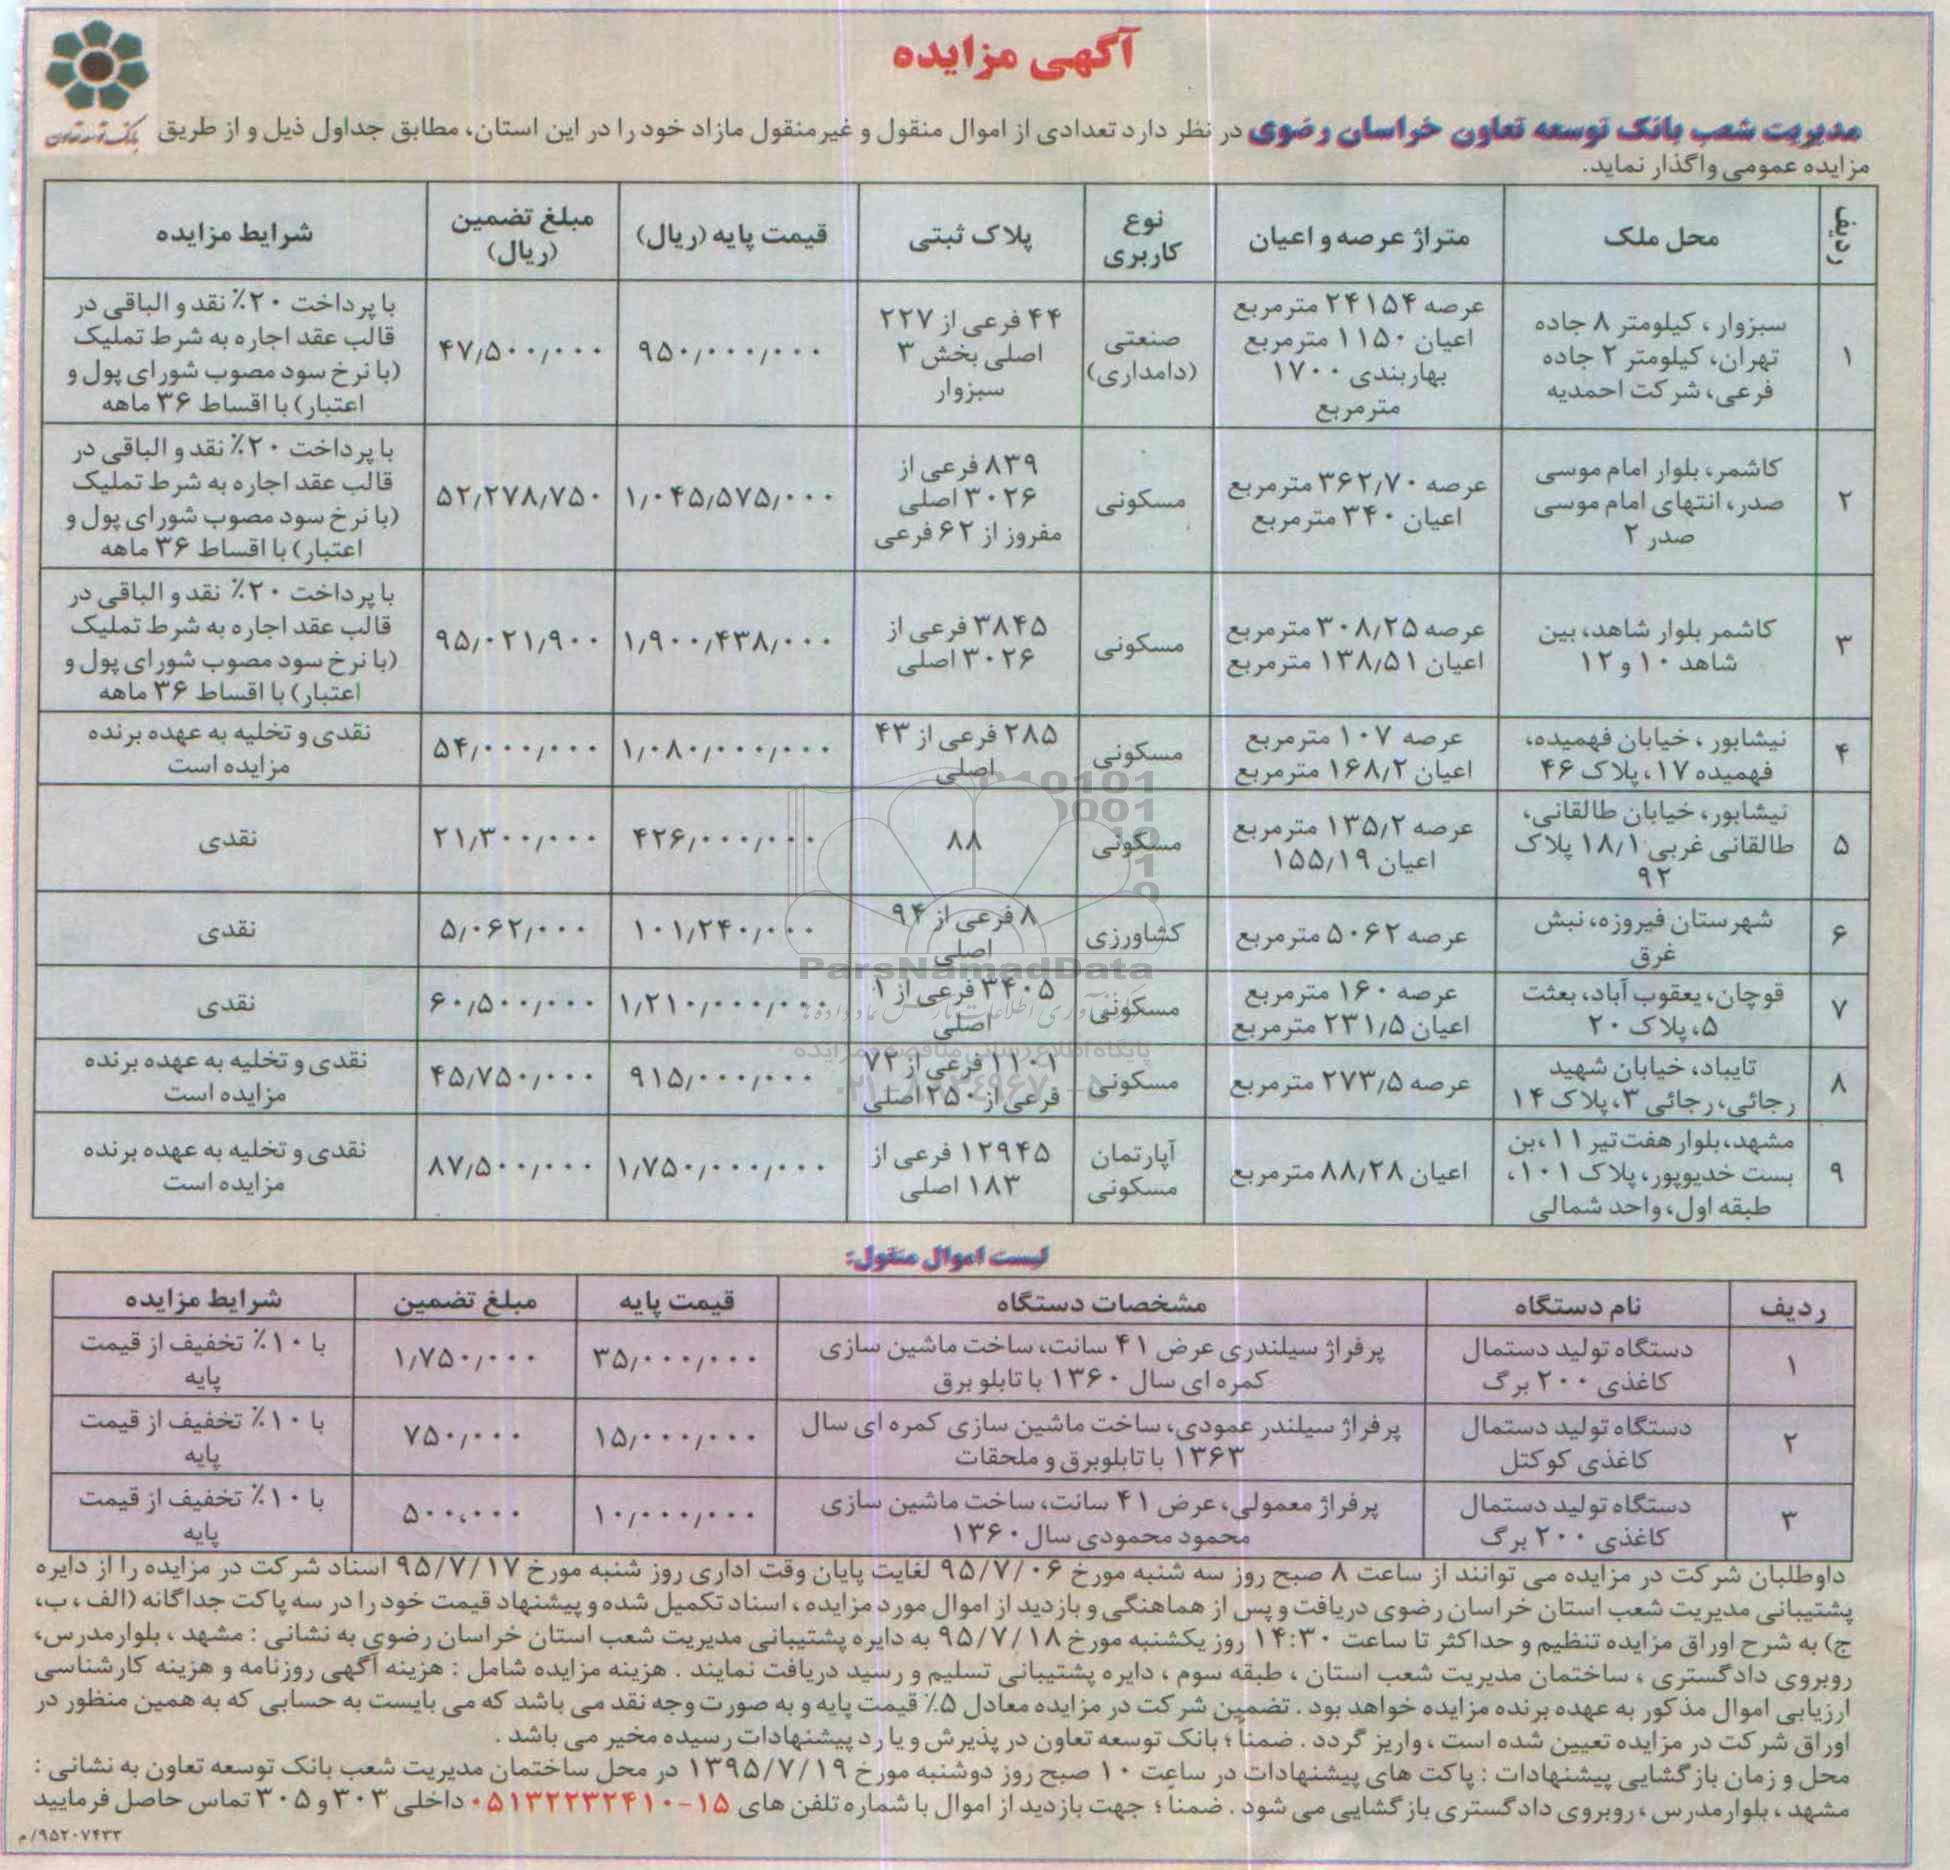 آگهی مزایده
بانک توسعه تعاون
مدیریت شعب بانک توسعه تعاون خراسان رضوی در نظر دارد تعدادی از اموال منقول و غیرمنقول مازاد خود را در این استان، مطابق جداول ذیل و از طریق
مزایده عمومی واگذار نماید.
ردیف | محل ملک | متراژ عرصه و اعیان | نوع کاربری | پلاک ثبتی | قیمت پایه (ریال) | مبلغ تضمین (ریال) | شرایط مزایده
۱ | سبزوار، کیلومتر ۸ جاده تهران، کیلومتر ۲ جاده فرعی، شرکت احمدیه | عرصه ۲۴۱۵۴ مترمربع اعیان ۱۱۵۰ مترمربع بهاربندی ۱۷۰۰ مترمربع | صنعتی (دامداری) | ۴۴ فرعی از ۲۲۷ اصلی بخش ۳ سبزوار | ۹۵۰/۰۰۰/۰۰۰ | ۴۷/۵۰۰/۰۰۰ | با پرداخت ۲۰٪ نقد و الباقی در قالب عقد اجاره به شرط تملیک (با نرخ سود مصوب شورای پول و اعتبار) با اقساط ۳۶ ماهه
۲ | کاشمر، بلوار امام موسی صدر، انتهای امام موسی صدر ۲ | عرصه ۳۶۲/۷۰ مترمربع اعیان ۳۴۰ مترمربع | مسکونی | ۸۳۹ فرعی از ۳۰۲۶ اصلی مفروز از ۶۲ فرعی | ۱/۰۴۵/۵۷۵/۰۰۰ | ۵۲/۲۷۸/۷۵۰ | با پرداخت ۲۰٪ نقد و الباقی در قالب عقد اجاره به شرط تملیک (با نرخ سود مصوب شورای پول و اعتبار) با اقساط ۳۶ ماهه
۳ | کاشمر بلوار شاهد، بین شاهد ۱۰ و ۱۲ | عرصه ۳۰۸/۲۵ مترمربع اعیان ۱۳۸/۵۱ مترمربع | مسکونی | ۳۸۴۵ فرعی از ۳۰۲۶ اصلی | ۱/۹۰۰/۴۳۸/۰۰۰ | ۹۵/۰۲۱/۹۰۰ | با پرداخت ۲۰٪ نقد و الباقی در قالب عقد اجاره به شرط تملیک (با نرخ سود مصوب شورای پول و اعتبار) با اقساط ۳۶ ماهه
۴ | نیشابور، خیابان فهمیده، فهمیده ۱۷، پلاک ۴۶ | عرصه ۱۰۷ مترمربع اعیان ۱۶۸/۲ مترمربع | مسکونی | ۲۸۵ فرعی از ۴۳ اصلی | ۱/۰۸۰/۰۰۰/۰۰۰ | ۵۴/۰۰۰/۰۰۰ | نقدی و تخلیه به عهده برنده مزایده است
۵ | نیشابور، خیابان طالقانی، طالقانی غربی ۱۸/۱ پلاک ۹۲ | عرصه ۱۳۵/۲ مترمربع اعیان ۱۵۵/۱۹ | مسکونی | ۸۸ | ۴۲۶/۰۰۰/۰۰۰ | ۲۱/۳۰۰/۰۰۰ | نقدی
۶ | شهرستان فیروزه، نبش غرق | عرصه ۵۰۶۲ مترمربع | کشاورزی | ۸ فرعی از ۹۴ اصلی | ۱۰۱/۲۴۰/۰۰۰ | ۵/۰۶۲/۰۰۰ | نقدی
۷ | قوچان، یعقوب آباد، بعثت ۵، پلاک ۲۰ | عرصه ۱۶۰ مترمربع اعیان ۲۳۱/۵ مترمربع | مسکونی | ۳۴۰۵ فرعی از ۱ اصلی | ۱/۲۱۰/۰۰۰/۰۰۰ | ۶۰/۵۰۰/۰۰۰ | نقدی
۸ | تایباد، خیابان شهید رجائی، رجائی ۳، پلاک ۱۴ | عرصه ۲۷۳/۵ مترمربع | مسکونی | ۱۱۰۱ فرعی از ۷۲ فرعی از ۲۵۰ اصلی | ۹۱۵/۰۰۰/۰۰۰ | ۴۵/۷۵۰/۰۰۰ | نقدی و تخلیه به عهده برنده مزایده است
۹ | مشهد، بلوار هفت تیر ۱۱، بن بست خدیوپور، پلاک ۱۰۱، طبقه اول، واحد شمالی | اعیان ۸۸/۲۸ مترمربع | آپارتمان مسکونی | ۱۲۹۴۵ فرعی از ۱۸۳ اصلی | ۱/۷۵۰/۰۰۰/۰۰۰ | ۸۷/۵۰۰/۰۰۰ | نقدی و تخلیه به عهده برنده مزایده است
ParsNamadData
پایگاه اطلاع رسانی مناقصه و مزایده
لیست اموال منقول:
ردیف | نام دستگاه | مشخصات دستگاه | قیمت پایه | مبلغ تضمین | شرایط مزایده
۱ | دستگاه تولید دستمال کاغذی ۲۰۰ برگ | پرفراژ سیلندری عرض ۴۱ سانت، ساخت ماشین سازی کمره ای سال ۱۳۶۰ با تابلو برق | ۳۵/۰۰۰/۰۰۰ | ۱/۷۵۰/۰۰۰ | با ۱۰٪ تخفیف از قیمت پایه
۲ | دستگاه تولید دستمال کاغذی کوکتل | پرفراژ سیلندر عمودی، ساخت ماشین سازی کمره ای سال ۱۳۶۳ با تابلوبرق و ملحقات | ۱۵/۰۰۰/۰۰۰ | ۷۵۰/۰۰۰ | با ۱۰٪ تخفیف از قیمت پایه
۳ | دستگاه تولید دستمال کاغذی ۲۰۰ برگ | پرفراژ معمولی، عرض ۴۱ سانت، ساخت ماشین سازی محمود محمودی سال ۱۳۶۰ | ۱۰/۰۰۰/۰۰۰ | ۵۰۰،۰۰۰ | با ۱۰٪ تخفیف از قیمت پایه
داوطلبان شرکت در مزایده می توانند از ساعت ۸ صبح روز سه شنبه مورخ ۹۵/۷/۰۶ لغایت پایان وقت اداری روز شنبه مورخ ۹۵/۷/۱۷ اسناد شرکت در مزایده را از دایره
پشتیبانی مدیریت شعب استان خراسان رضوی دریافت و پس از هماهنگی و بازدید از اموال مورد مزایده، اسناد تکمیل شده و پیشنهاد قیمت خود را در سه پاکت جداگانه (الف، ب،
ج) به شرح اوراق مزایده تنظیم و حداکثر تا ساعت ۱۴:۳۰ روز یکشنبه مورخ ۹۵/۷/۱۸ به دایره پشتیبانی مدیریت شعب استان خراسان رضوی به نشانی : مشهد، بلوارمدرس،
روبروی دادگستری، ساختمان مدیریت شعب استان، طبقه سوم، دایره پشتیبانی تسلیم و رسید دریافت نمایند. هزینه مزایده شامل : هزینه آگهی روزنامه و هزینه کارشناسی
ارزیابی اموال مذکور به عهده برنده مزایده خواهد بود. تضمین شرکت در مزایده معادل ۵٪ قیمت پایه و به صورت وجه نقد می باشد که می بایست به حسابی که به همین منظور در
اوراق شرکت در مزایده تعیین شده است، واریز گردد. ضمناً؛ بانک توسعه تعاون در پذیرش و یا رد پیشنهادات رسیده مخیر می باشد.
محل و زمان بازگشایی پیشنهادات : پاکت های پیشنهادات در ساعت ۱۰ صبح روز دوشنبه مورخ ۱۳۹۵/۷/۱۹ در محل ساختمان مدیریت شعب بانک توسعه تعاون به نشانی :
مشهد، بلوارمدرس، روبروی دادگستری بازگشایی می شود. ضمناً؛ جهت بازدید از اموال با شماره تلفن های ۱۵-۰۵۱۳۲۲۳۲۴۱۰ داخلی ۳۰۳ و ۳۰۵ تماس حاصل فرمایید
۹۵۲۰۷۴۳۳/م